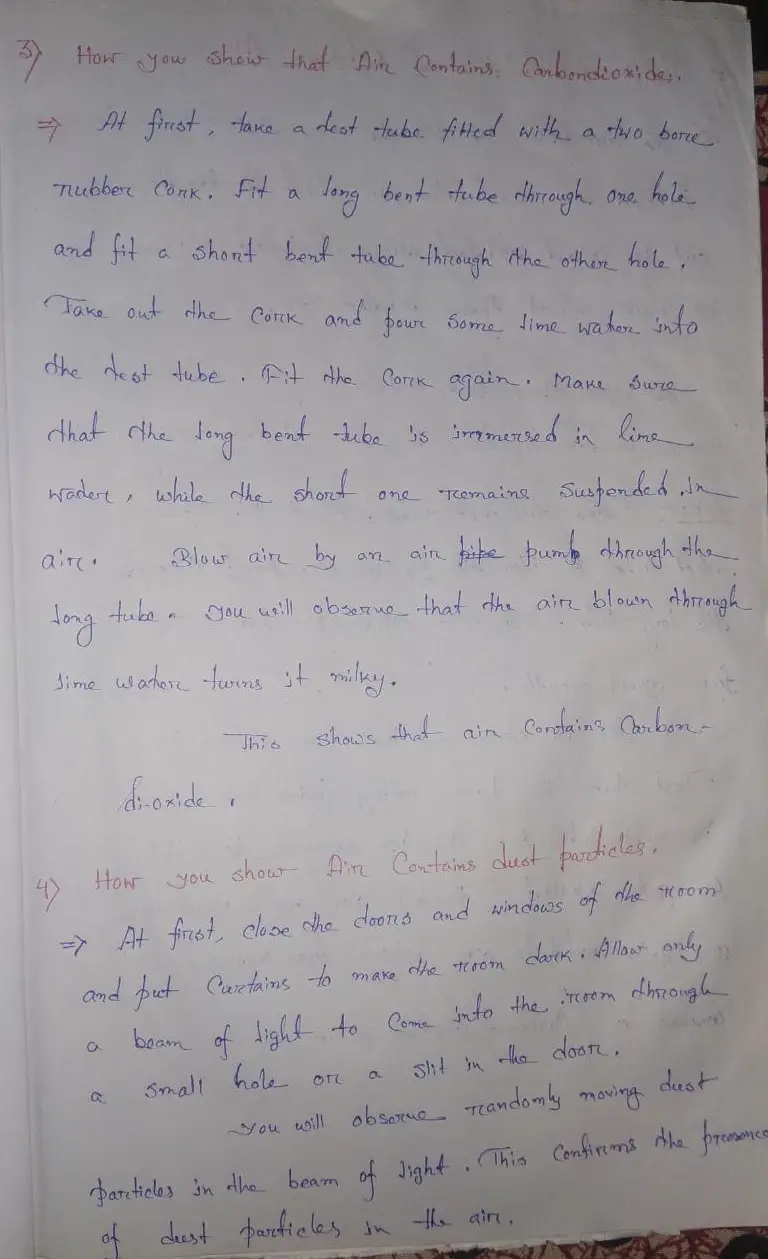 3) How you show that Air Contains Carbondioxide.
⇒ At first, take a test tube fitted with a two bore
rubber Cork. Fit a long bent tube through one hole
and fit a short bent tube through the other hole.
Take out the Cork and pour some lime water into
the test tube. Fit the Cork again. Make sure
that the long bent tube is immersed in lime
water, while the short one remains suspended in
air. Blow air by an air pipe pump through the
long tube. You will observe that the air blown through
lime water turns it milky.
This shows that air Contains Carbon-
di-oxide.
4) How you show Air Contains dust particles.
⇒ At first, close the doors and windows of the room
and put Curtains to make the room dark. Allow only
a beam of light to Come into the room through
a small hole or a slit in the door.
You will observe randomly moving dust
particles in the beam of light. This Confirms the presence
of dust particles in the air.